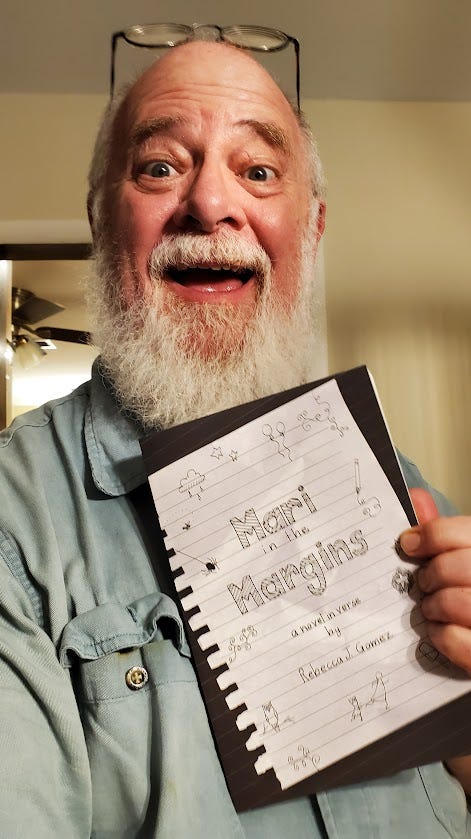 Mari
in the
Margins
a novel in verse
by
Rebecca J. Gomez